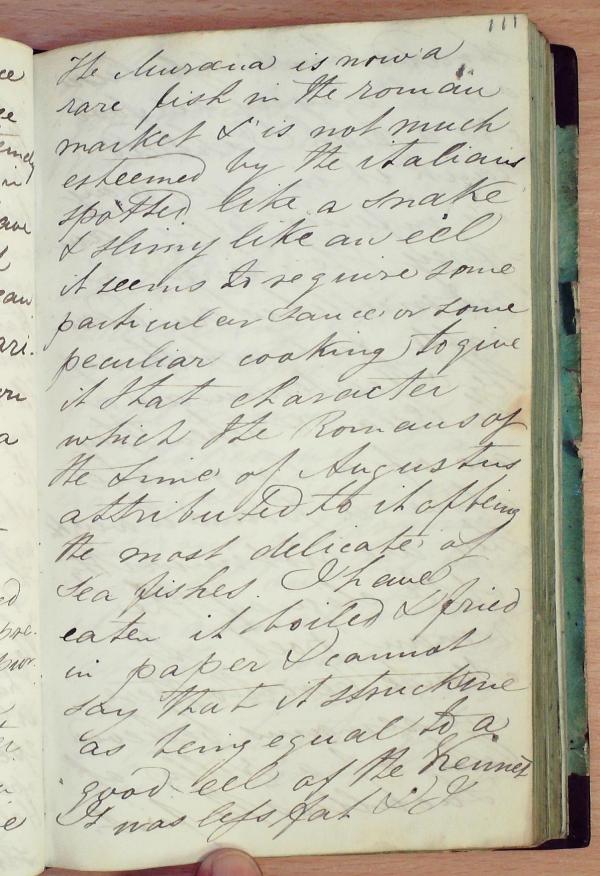 111
The Muræna is now a
rare fish in the roman
market & is not much
esteemed by the italians
spotted like a snake
& slimy like an eel
it seems to require some
particular sauce or some
peculiar cooking to give
it that character
which the Romans of
the time of Augustus
attributed to it of being
the most delicate of
sea fishes. I have
eaten it boiled & fried
in paper & cannot
say that it struck me
as being equal to a
good eel of the Kennet
It was less fat & I